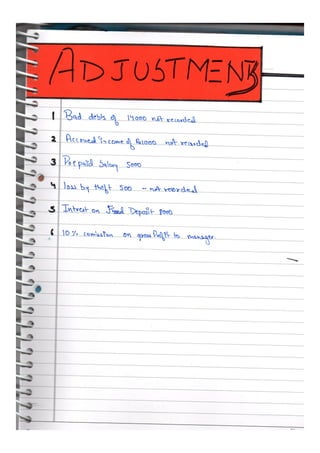 ADJUSTMENTS
1 Bad debts of 14000 not recorded
2 Accrued income of not recorded
3 Prepaid Salary 5000
4 loss by theft 500 - not recorded
5 Intrest on Deposit
6 10% comission on gross Profit to manager